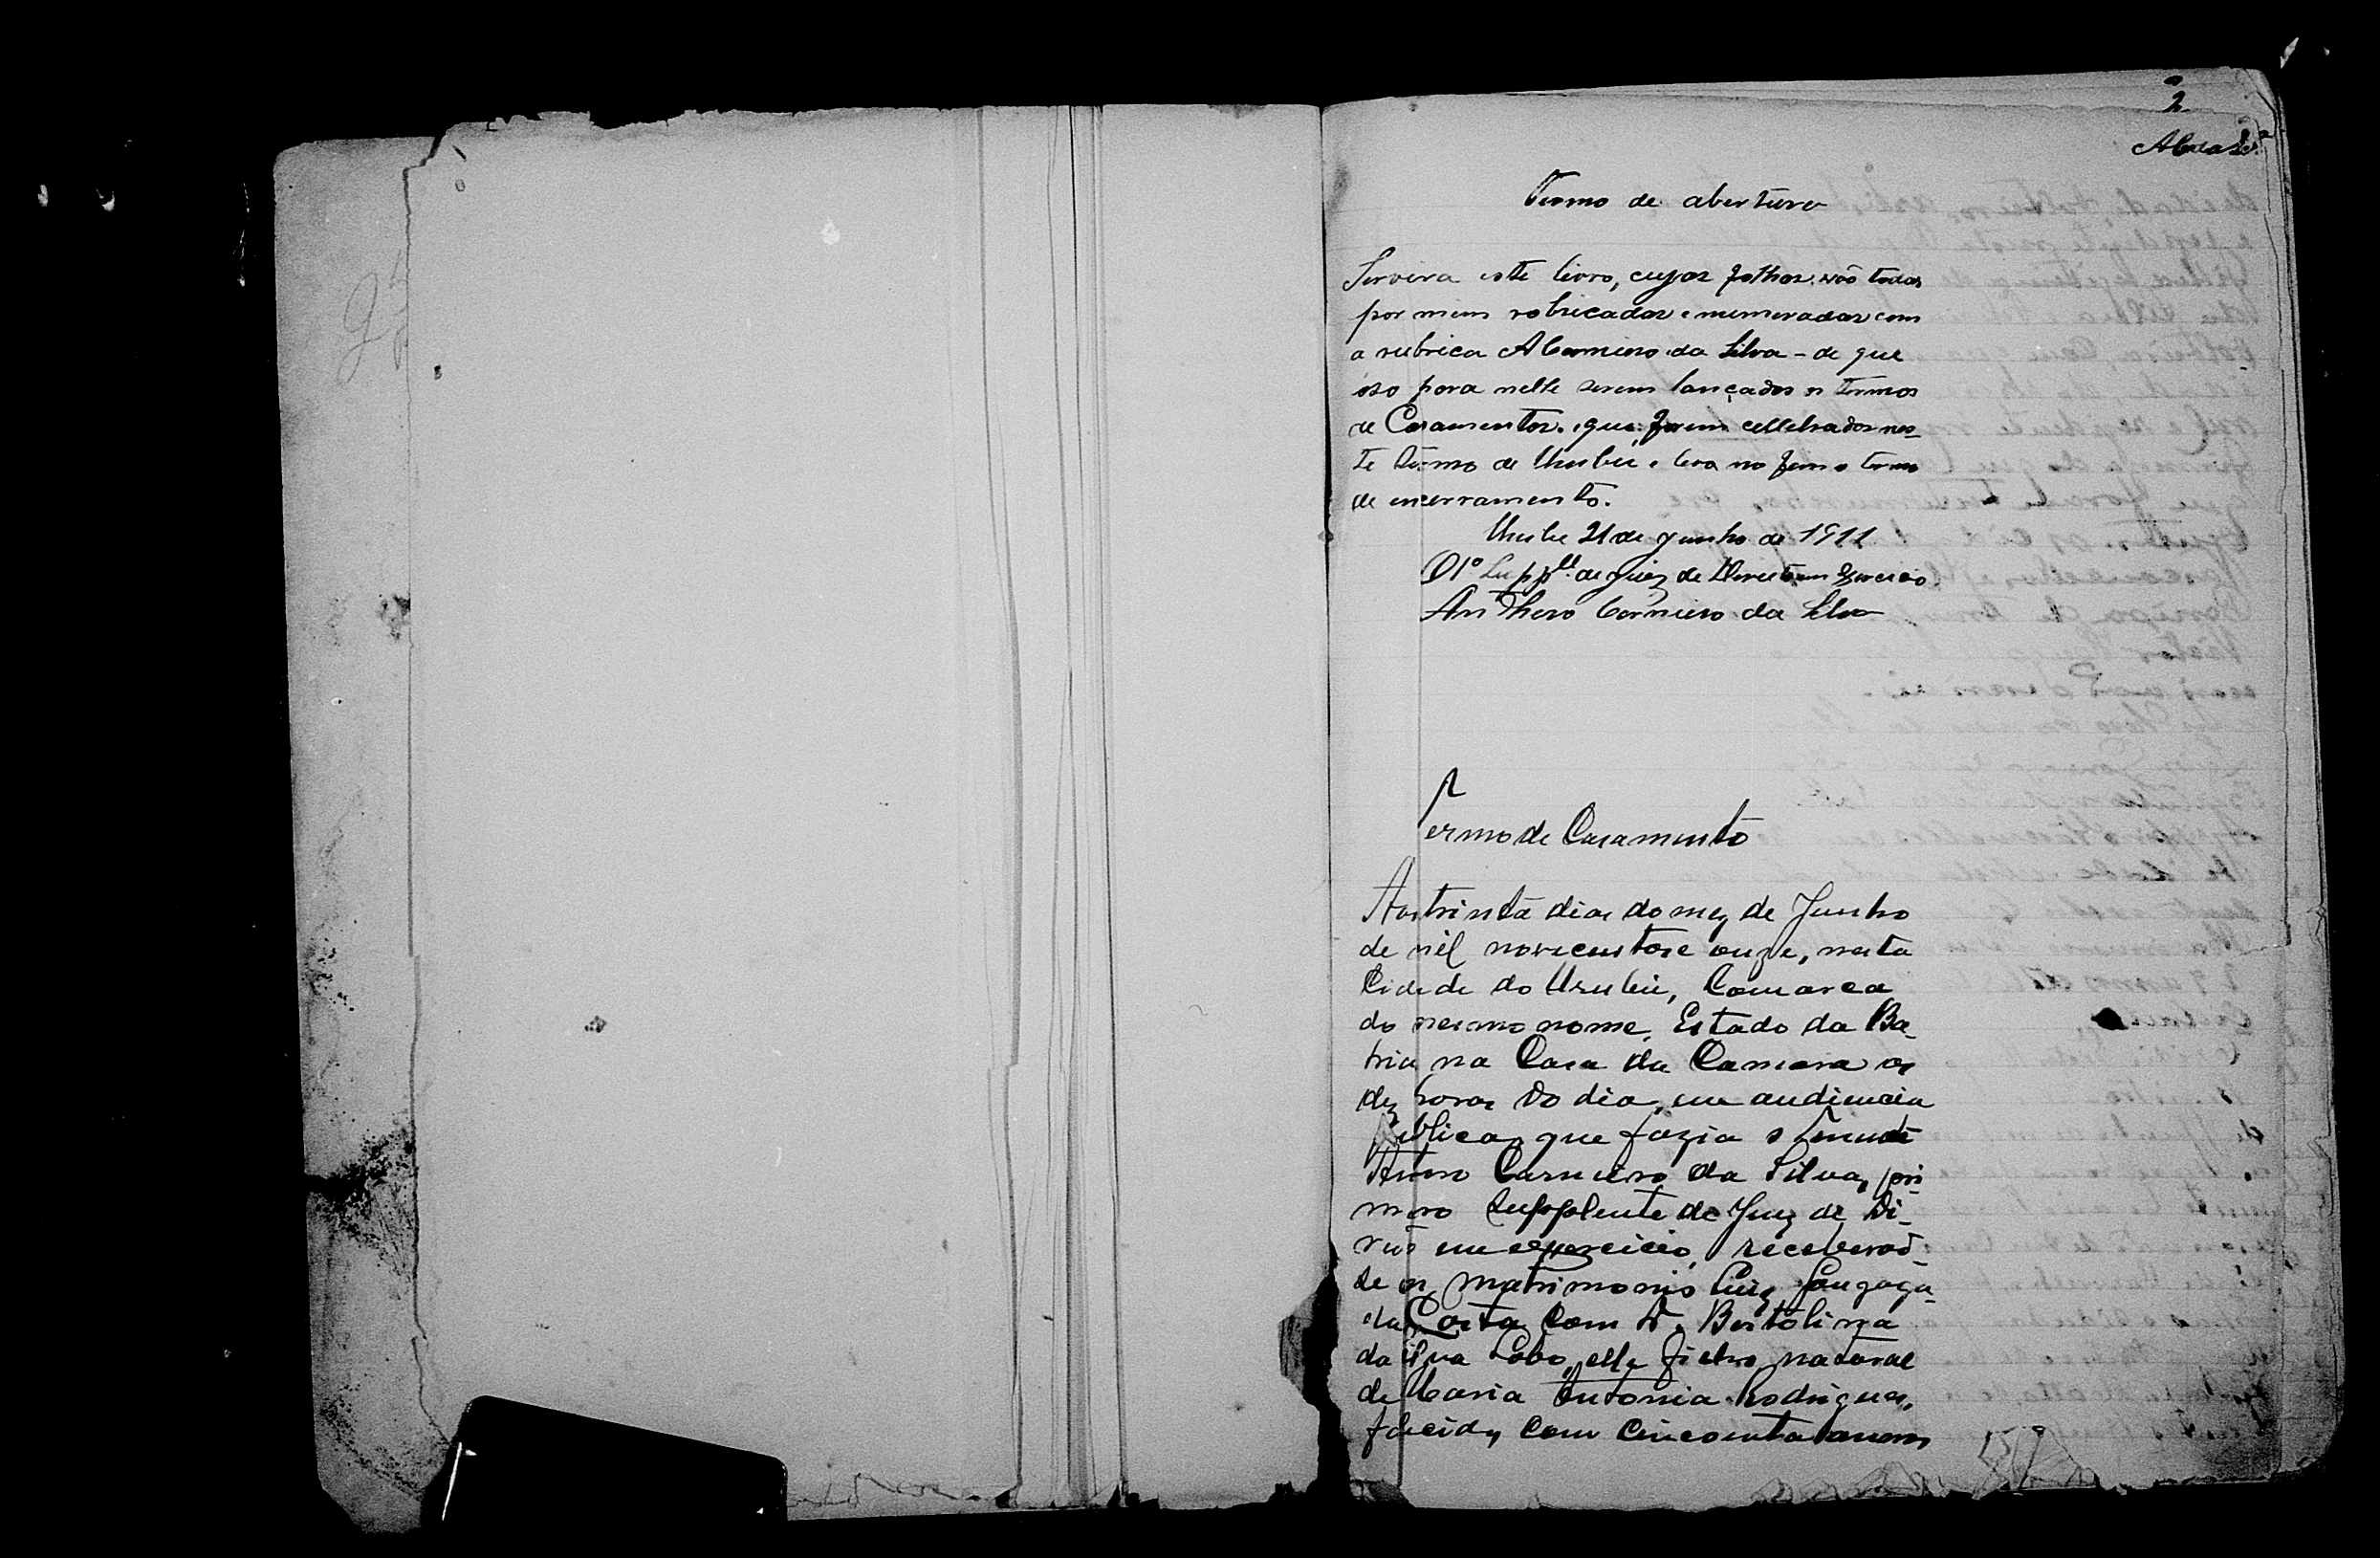 2
Termo de abertura
Servira este livro, cujas folhas são todas
por mim robricadas e numeradas com
a rubrica ACarneiro da Silva - de que
uso para nelle serem lançados os termos
de Casamentos. que forem cellebrados nes-
te termo de Urubu e leva no fim o termo
de encerramento.
Urubu 21 de Junho de 1911
O 1º Supple. de Juiz de Direito em Exercicio
Anthero Carneiro da Silva
Termo de Casamento
Aos trinta dias do mez de Junho
de mil novecentos e onze, nesta
Cidade do Urubú, Comarca
do mesmo nome, Estado da Ba-
hia na Casa da Camara as
dez horas do dia, em audiencia
publica que fazia o Tenente
Antero Carneiro da Silva, pri-
meiro Supplente de Juiz de Di-
reito em exercicio, receberaõ-
se em matrimonio Luiz Gonzaga
da Costa Com D. Bertolina
da Silva Lobo, elle filho natural
de Maria Antonia Rodrigues,
falecida, Com Cincoenta annos